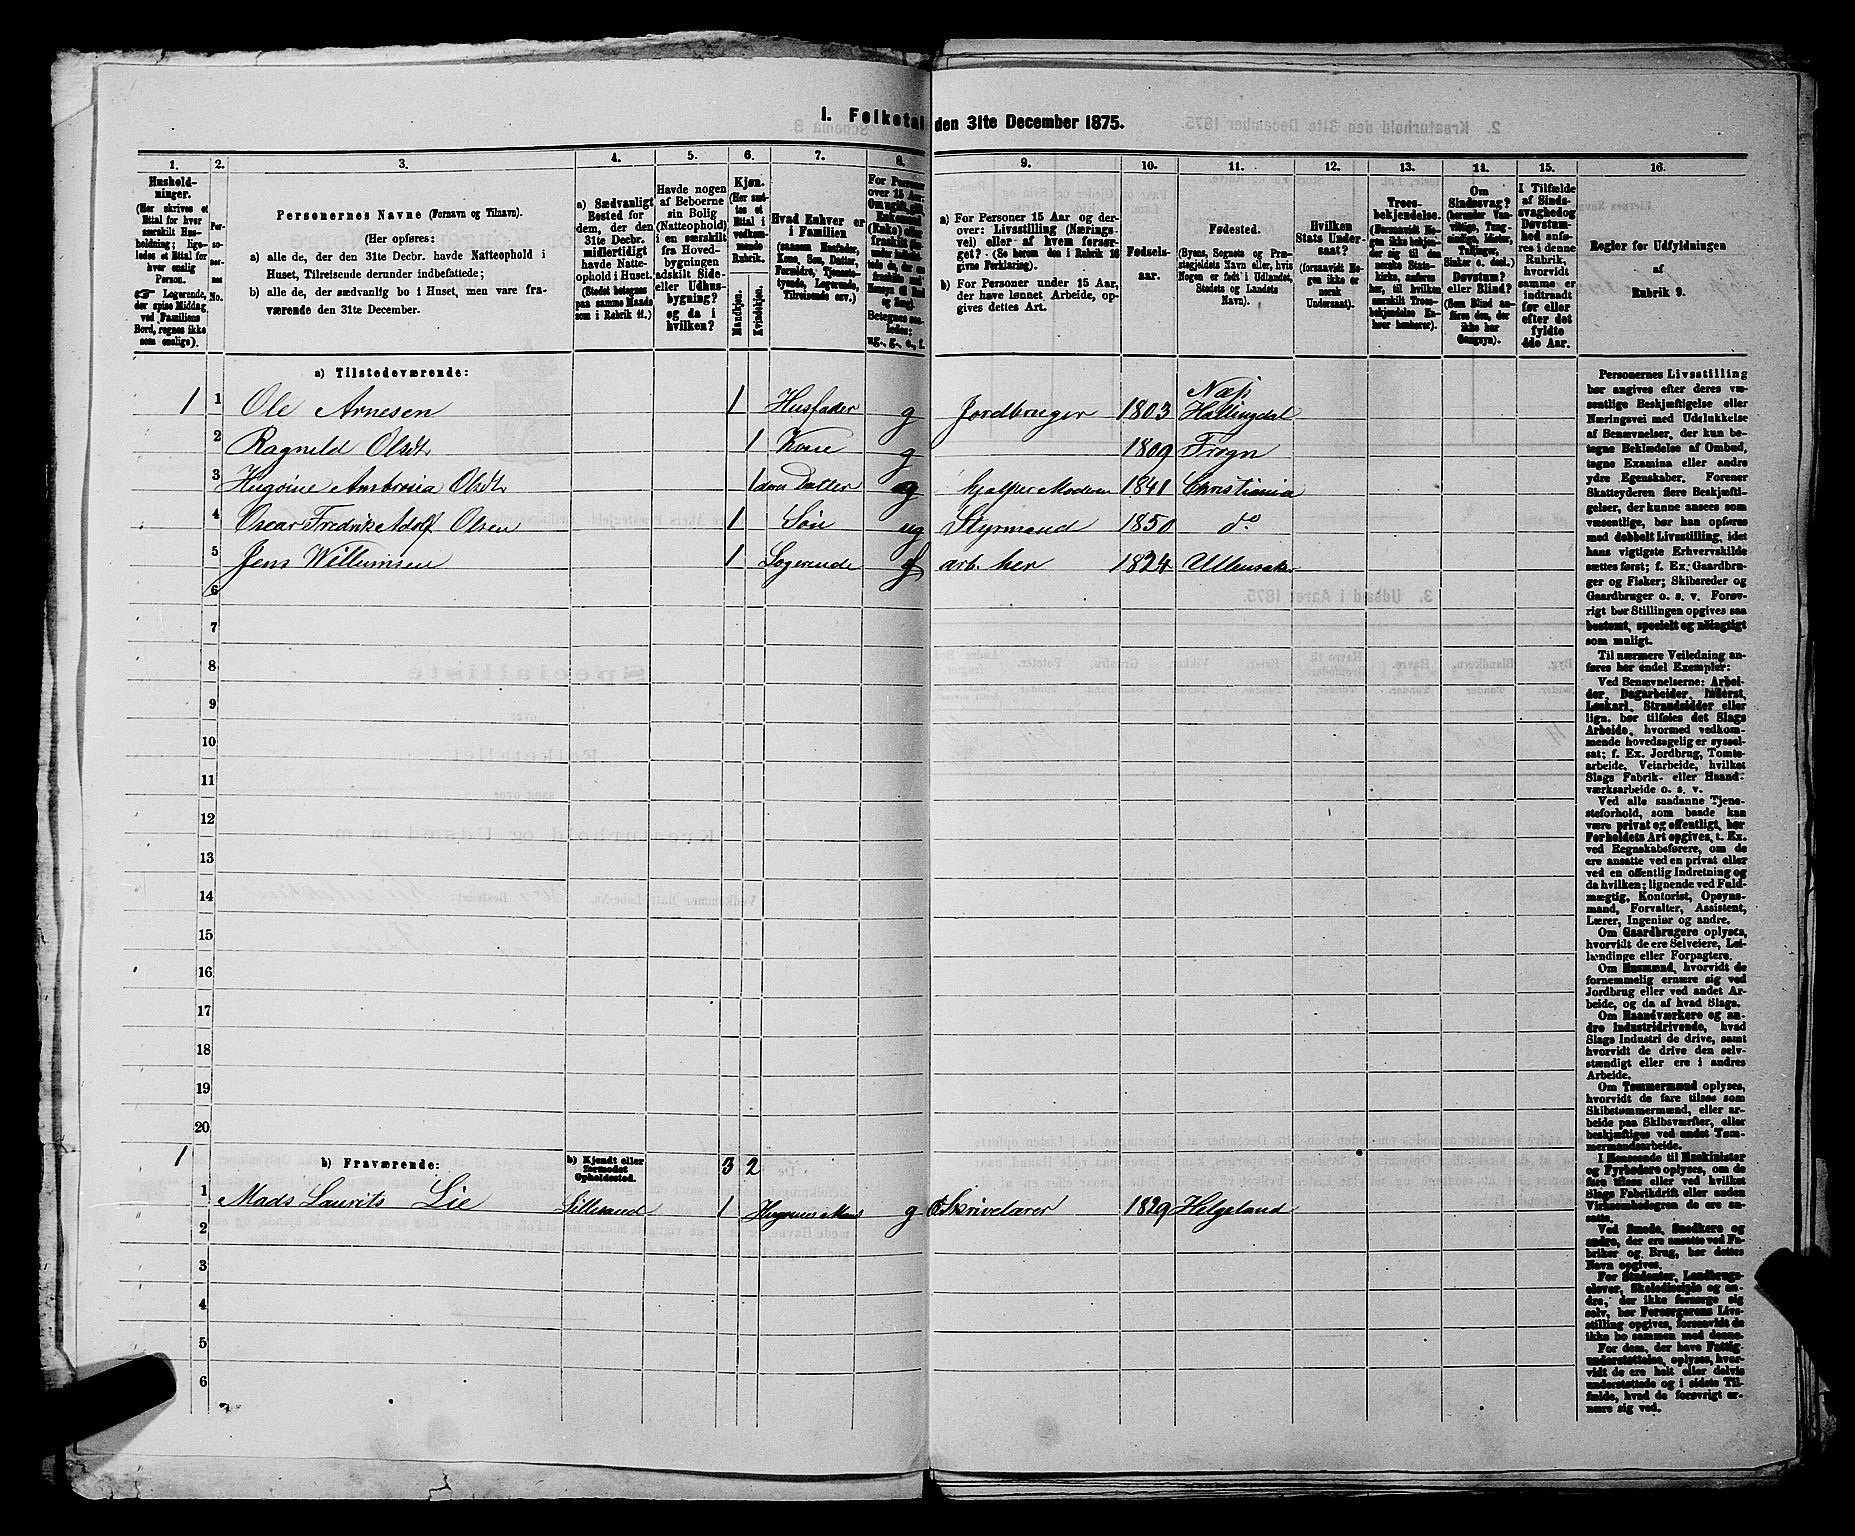 1. Folketal den 31te December 1875.
1. 2. 3. 4. 5. 6. 7. 8. 9. 10. 11. 12. 13. 14. 15. 16.
Husholdninger.
(Her skrives et
Ettal for hver
særskilt Husholdning;
ligeledes et Ettal for
hver enslig
Person.
Logerende,
der spise Middag
ved Familiens
Bord, regnes ikke
som enslige).
Personernes No.
Personernes Navne (Fornavn og Tilnavn).
(Her opføres:
a) alle de, der den 31te Decbr. havde Natteophold i
Huset, Tilreisende derunder indbefattede;
b) alle de, der sædvanlig bo i Huset, men vare fraværende
den 31te December.
a) Sædvanligt
Bosted for
dem, der den
31te Decbr.
midlertidigt
havde Natteophold
i Huset.
(Stedet betegnes
paa samme Maade
som i Rubrik 11.)
Havde nogen
af Beboerne
sin Bolig
(Natteophold)
i en særskilt
fra Hovedbygningen
adskilt Side-
eller Udhusbygning?
og da i
hvilken?
Kjøn.
(Her sættes
et
Ettal i
vedkommende
Rubrik.
Mandkjøn.
Kvindekjøn.
Hvad Enhver er
i Familien
(saasom Husfader,
Kone, Søn, Datter,
Forældre, Tjenestetyende,
Logerende,
Tilreisende osv.)
For Personer
over 15 Aar:
ug., g., e., f.
a) For Personer 15 Aar og derover:
Livsstilling (Næringsvei)
eller af hvem forsørget?
(Se herom den i Rubrik 16
givne Forklaring).
b) For Personer under 15 Aar,
der have lønnet Arbeide, opgives
dettes Art.
Fødselsaar.
Fødested.
(Byens, Sognets og Præstegjeldets
Navn eller, hvis
Nogen er født i Udlandet,
Stedets og Landets
Navn).
Hvilken
Stats Undersaat?
(forsaavidt Nogen
ikke er
norsk
Undersaat).
Troesbekjendelse.
Om
Sindssvag?
Døvstum?
eller Blind?
I Tilfælde
af Sindssvaghed og
Døvstumhed
anføres
i denne
Rubrik,
hvorvidt
samme er
indtraadt
før eller
efter det
fyldte
4de Aar.
Regler for Udfyldningen
af
Rubrik 9.
a) Tilstedeværende:
1 1 Ole Arnesen 1 Husfader g Jordbruger 1803 Næs Hallingdal
2 Ragnild Olsdt 1 Kone g 1809 Frogn
3 Hugoine Ambrosia Olsdt 1 deres Datter g hjælper Moderen 1841 Christiania
4 Oscar Fredrik Adolf Olsen 1 Søn ug Styrmand 1850 do
5 Jens Willumsen 1 Logerende 1824 Ullensaker
6
7
8
9
10
11
12
13
14
15
16
17
18
19
20
1 b) Fraværende: b) Kjendt eller
formodet
Opholdssted. 3 2
1 Mads Laurits Lie Lillesand 1 Hugoines Mand g Skrivelærer 1829 Helgeland
2
3
4
5
6
Personernes Livsstilling
bør angives efter deres væsentlige
Beskjæftigelse eller
Næringsvei med Udelukkelse
af Benævnelser, der kun betegne
Beklædelse af Ombud,
tagne Examina eller andre
ydre Egenskaber. Forener
Skatteyderen flere Beskjæftigelser,
der kunne ansees som
væsentlige, bør han opføres
med dobbelt Livsstilling, idet
hans vigtigste Erhvervskilde
sættes først; f. Ex. Gaardbruger
og Fisker; Skibsreder og
Gaardbruger o. s. v. Forøvrigt
bør Stillingen opgives saa
bestemt, specielt og nøiagtigt
som muligt.
Til nærmere Veiledning anføres
her endel Exempler:
Ved Benævnelserne: Arbeider,
Dagarbeider, Inderst,
Løskarl, Strandsidder eller
lign. bør tilføies det Slags
Arbeide, hvormed vedkommende
hovedsagelig er sysselsat;
f. Ex. Jordbrug, Tomtearbeide,
Veiarbeide, hvilket
Slags Fabrik- eller Haandværksarbeide
o. s. v.
Ved alle saadanne Tjenesteforhold,
som baade kan
være privat og offentligt, bør
Forholdets Art opgives, t. Ex.
ved Regnskabsførere, om de
ere ansatte ved en privat eller
ved en offentlig Indretning og
da hvilken; lignende ved Fuldmægtig,
Kontorist, Opsynsmand,
Forvalter, Assistent,
Lærer, Ingeniør og andre.
Om Gaardbrugere oplyses,
hvorvidt de ere Selveiere, Leilændinge
eller Forpagtere.
Om Husmænd, hvorvidt de
fornemmelig ernære sig ved
Jordbrug eller ved andet Arbeide,
og da af hvad Slags.
Om Haandværkere og andre
Industridrivende, hvad
Slags Industri de drive, samt
hvorvidt de drive den selvstændigt
eller ere i andres
Arbeide.
Om Tømmermænd oplyses,
hvorvidt de fare tilsøs som
Skibstømmermænd, eller arbeide
paa Skibsværfter, eller
beskjæftiges ved andet Tømmermandsarbeide.
I Henseende til Maskinister
og Fyrbødere oplyses, om de
fare tilsøs eller ved hvilket
Slags Fabrikdrift eller anden
Virksomhedsgren de ere ansatte.
Ved Smede, Snedkere og
andre, der ere ansatte ved Fabriker
og Brug, bør dettes
Navn opgives.
For Studenter, Landbrugselever,
Skoledisciple og andre,
der ikke forsørge sig
selv, bør Forsørgerens Livsstilling
opgives, forsaavidt de
ikke bo sammen med denne.
For dem, der have Fattigunderstøttelse,
oplyses, hvorvidt
de ere helt eller delvis
understøttede og i sidste Tilfælde,
hvad de forøvrigt ernære
sig ved.